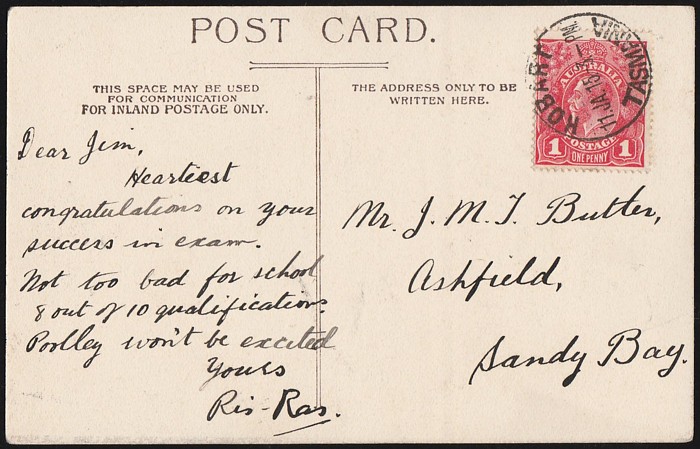 POST CARD.
THIS SPACE MAY BE USED
FOR COMMUNICATION
FOR INLAND POSTAGE ONLY.
Dear Jim,
Heartiest
congratulations on your
success in exam.
Not too bad for school
8 out of 10 qualifications.
Poolley won't be excited
Yours
Ris-Ras.
THE ADDRESS ONLY TO BE
WRITTEN HERE.
HOBART
TASMANIA
11.JA.15
PM
AUSTRALIA
POSTAGE
1 ONE PENNY 1
Mr. J. M. T. Butler,
Ashfield,
Sandy Bay.